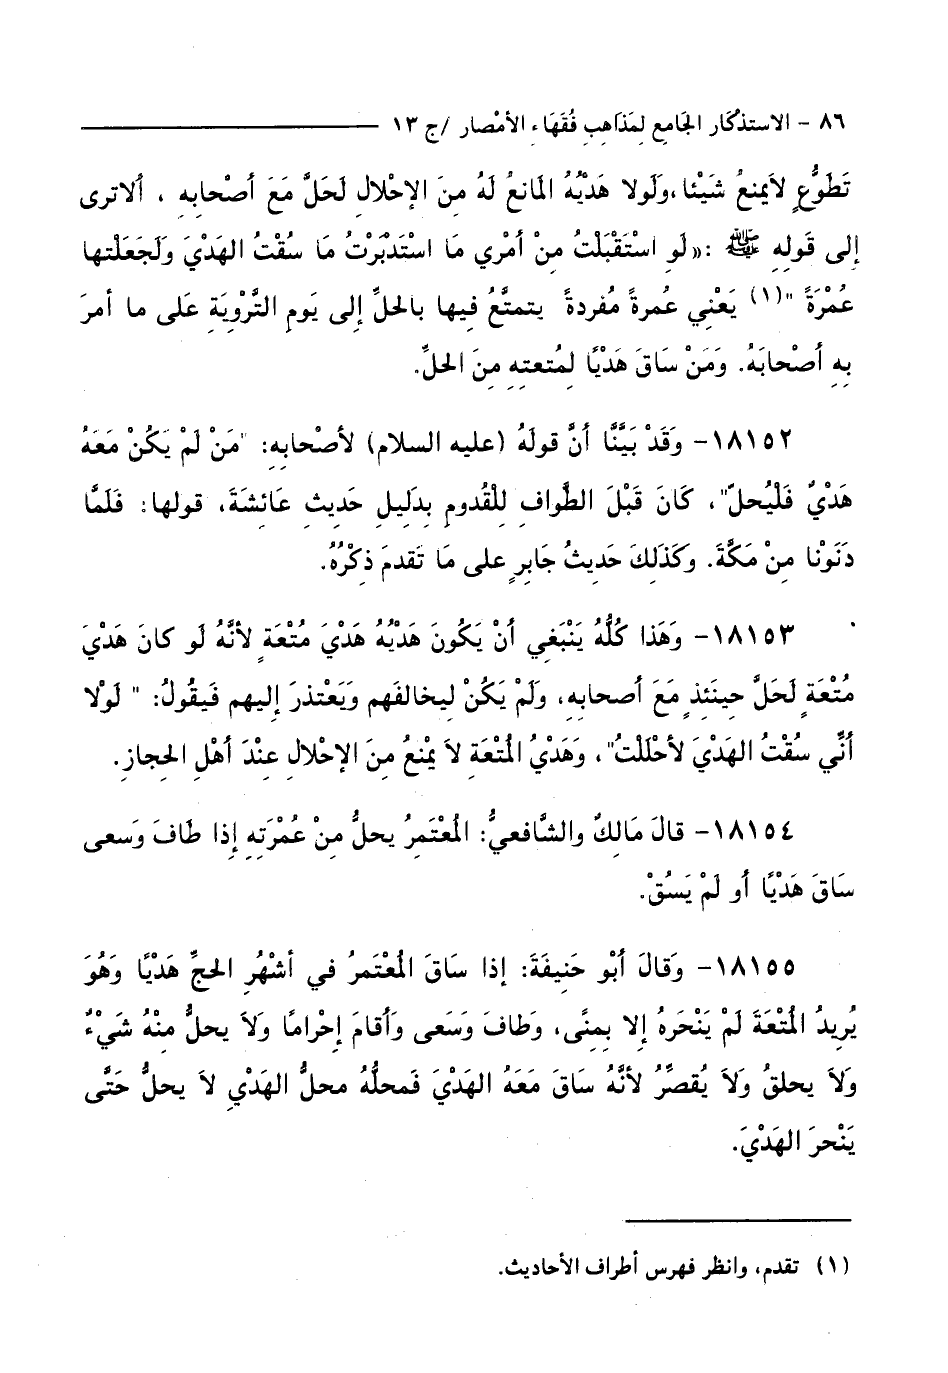 ٨٦ - الاستذْكَار الجَامع لمَذَاهب فُقَهَاء الأمْصار / ج ١٣
تَطَوُّعٍ لاَيمنعُ شَيْئا ،وَلَولا هَدْيُهُ المَانعُ لَهُ منَ الإحْلال لَحَلَّ مَعَ أَصْحابه ، ألاترى
إلى قَولِهِ ﷺ :«لَو اسْتَقْبَلْتُ منْ أمْري مَا اسْتَدْبَرْتُ مَا سقْتُ الهَدْيَ وَلَجَعَلْتها
عُمْرَةً "(١) يَعْني عُمرةً مُفردةً يتمتَّعُ فيها بالحلِّ إلى يَومِ التَّرْويَة عَلى ما أمرَ
به أصْحَابَهُ. وَمَنْ سَاقَ هَدْيًا لمُتعته منَ الحلِّ.
١٨١٥٢- وَقَدْ بَيَّنَّا أنَّ قولَهُ (عليه السلام) لأصْحابه: "مَنْ لَمْ يَكُنْ مَعَهُ
هَدْيٌ فَلْيُحلّ"، كَانَ قَبْلَ الطَّواف للْقُدوم بدَليل حَديث عَائشَةَ، قولها: فَلَمَّا
دَنَوْنا منْ مَكَّةَ. وكَذَلكَ حَديثُ جَابرٍ على مَا تَقدمَ ذكْرُهُ.
١٨١٥٣- وَهَذا كُلُّهُ يَنْبَغي أنْ يَكُونَ هَدْيُهُ هَدْيَ مُتْعَةٍ لأنَّهُ لو كانَ هَدْيَ
مُتْعَةٍ لَحَلَّ حينَئذٍ مَعَ أصحابه، ولَمْ يَكُنْ ليخالفَهم وَيَعْتذرَ إليهم فَيقولُ: " لَوْلا
أنِّي سقْتُ الهَدْيَ لأحْلَلْتُ"، وَهَدْيُ المُتْعَة لاَ يمْنعُ منَ الإحْلالِ عنْدَ أهْلِ الحجازِ.
١٨١٥٤- قالَ مَالكٌ والشَّافعيُّ: المُعْتَمرُ يحلُّ منْ عُمْرَتِهِ إذا طَافَ وَسَعى
سَاقَ هَدْيًا أو لَمْ يَسُقْ.
١٨١٥٥- وَقَالَ أبُو حَنيفَةَ: إذا سَاقَ المُعْتَمرُ في أشْهُرِ الحجِّ هَدْيًا وَهُوَ
يُريدُ المُتْعَةَ لَمْ يَنْحَرهُ إلا بمنًى، وَطافَ وَسَعى وَأقَامَ إحْرامًا وَلاَ يحلُّ منْهُ شَيْءٌ
وَلاَ يحلقُ وَلاَ يُقصِّرُ لأنَّهُ سَاقَ مَعَهُ الهَدْيَ فَمحلُّهُ محلُّ الهَدْيِ لاَ يحلُّ حَتَّى
يَنْحرَ الهَدْيَ.
(١) تقدم، وانظر فهرس أطراف الأحاديث.